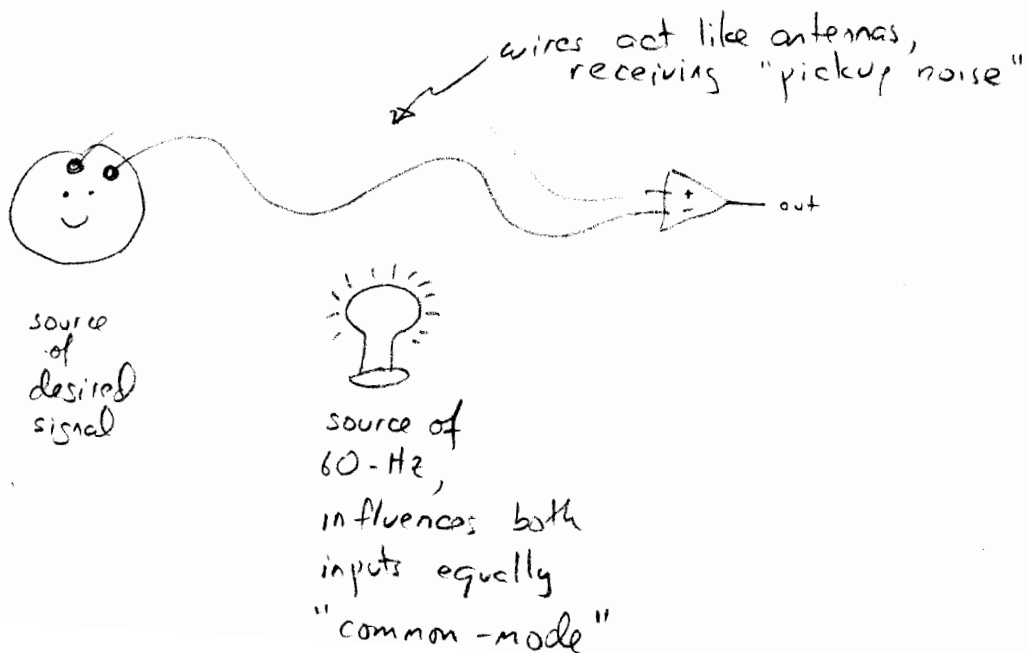 wires act like antennas,
receiving "pickup noise"
+
-
out
source
of
desired
signal
source of
60-Hz,
influences both
inputs equally
"common-mode"